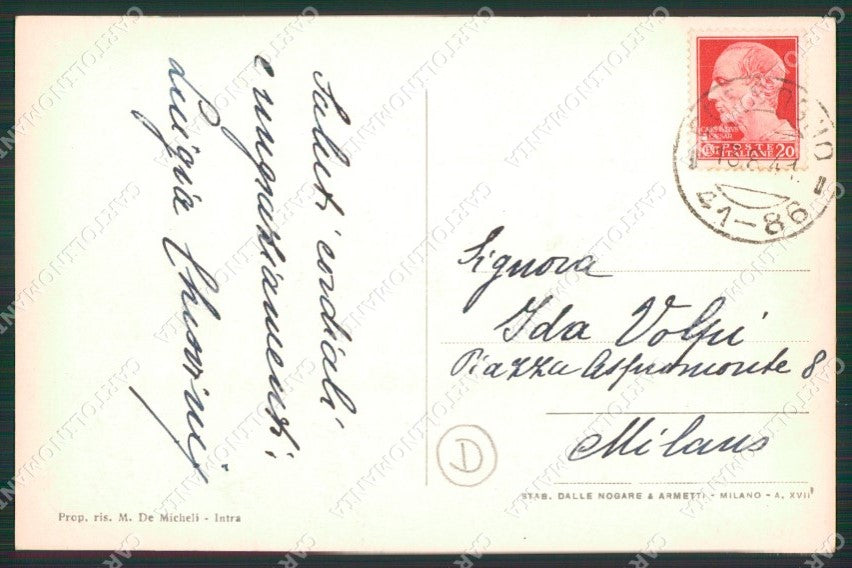 Saluti cordiali
e ringraziamenti
Luigia
CAESAR
POSTE
ITALIANE 20
18.6.41.
41-86
Signora
Ida Volpi
Piazza Aspromonte 8
Milano
D
STAB. DALLE NOGARE & ARMETTI - MILANO - A. XVII
Prop. ris. M. De Micheli - Intra
CARTOLINOMANIA